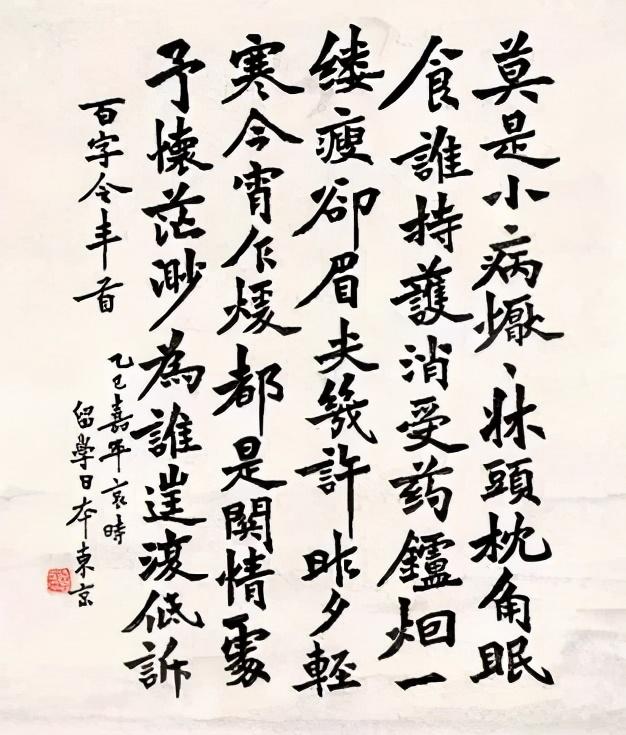 莫是小、病懨、牀頭枕角眠
食誰持護消受药鑪烟一
缕瘦卻眉尖幾許昨夕輕
寒今宵乍煖都是關情處
予懷茫渺為誰遑復低訴
百字令半首
乙巳嘉平哀時
留學日本東京